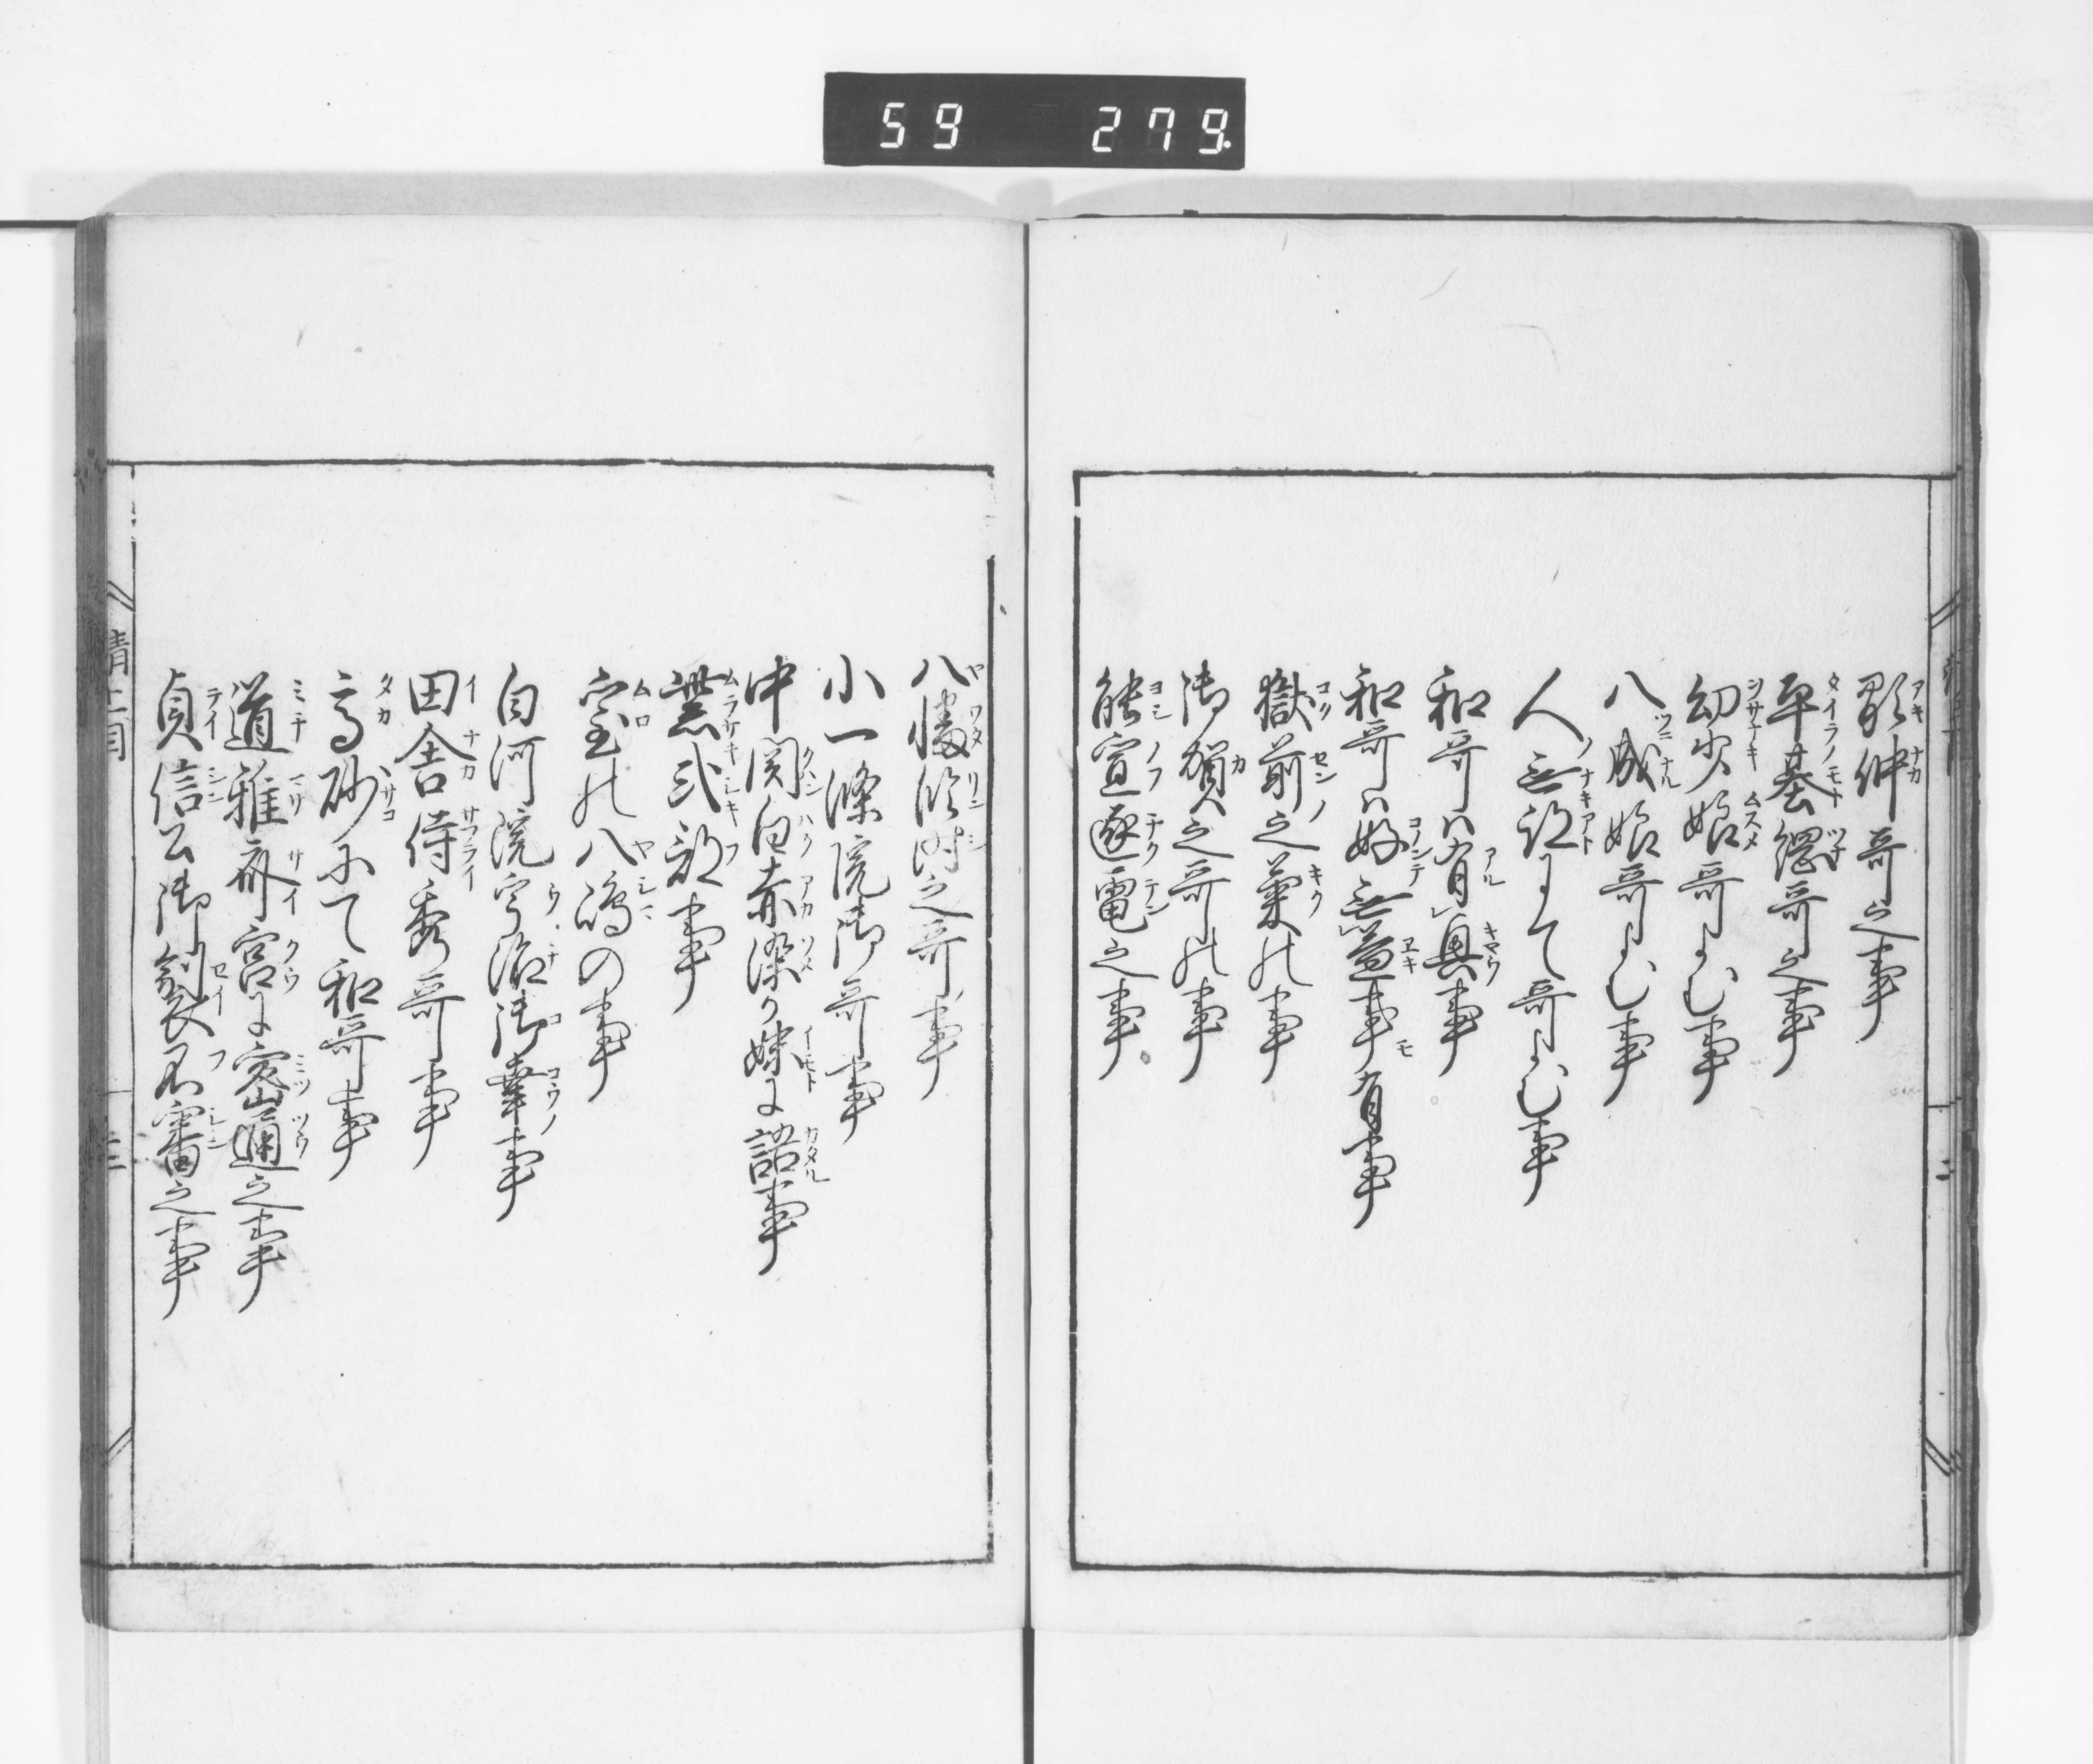 59 279
顕仲哥之事
平基綱哥之事
幼少娘哥よむ事
八成娘哥よむ事
人無跡にて哥よむ事
和哥ハ有興事
和哥ハ好無益事モ有事
獄前之菊の事
御賀之哥の事
能宣逐電之事
八幡臨時之哥事
小一條院御哥事
中関白赤染か妹に語事
紫式部事
室の八嶋の事
白河院宇治御幸事
田舎侍秀哥事
高砂にて和哥事
道雅斎宮に密通之事
貞信公御製不審之事
清上目